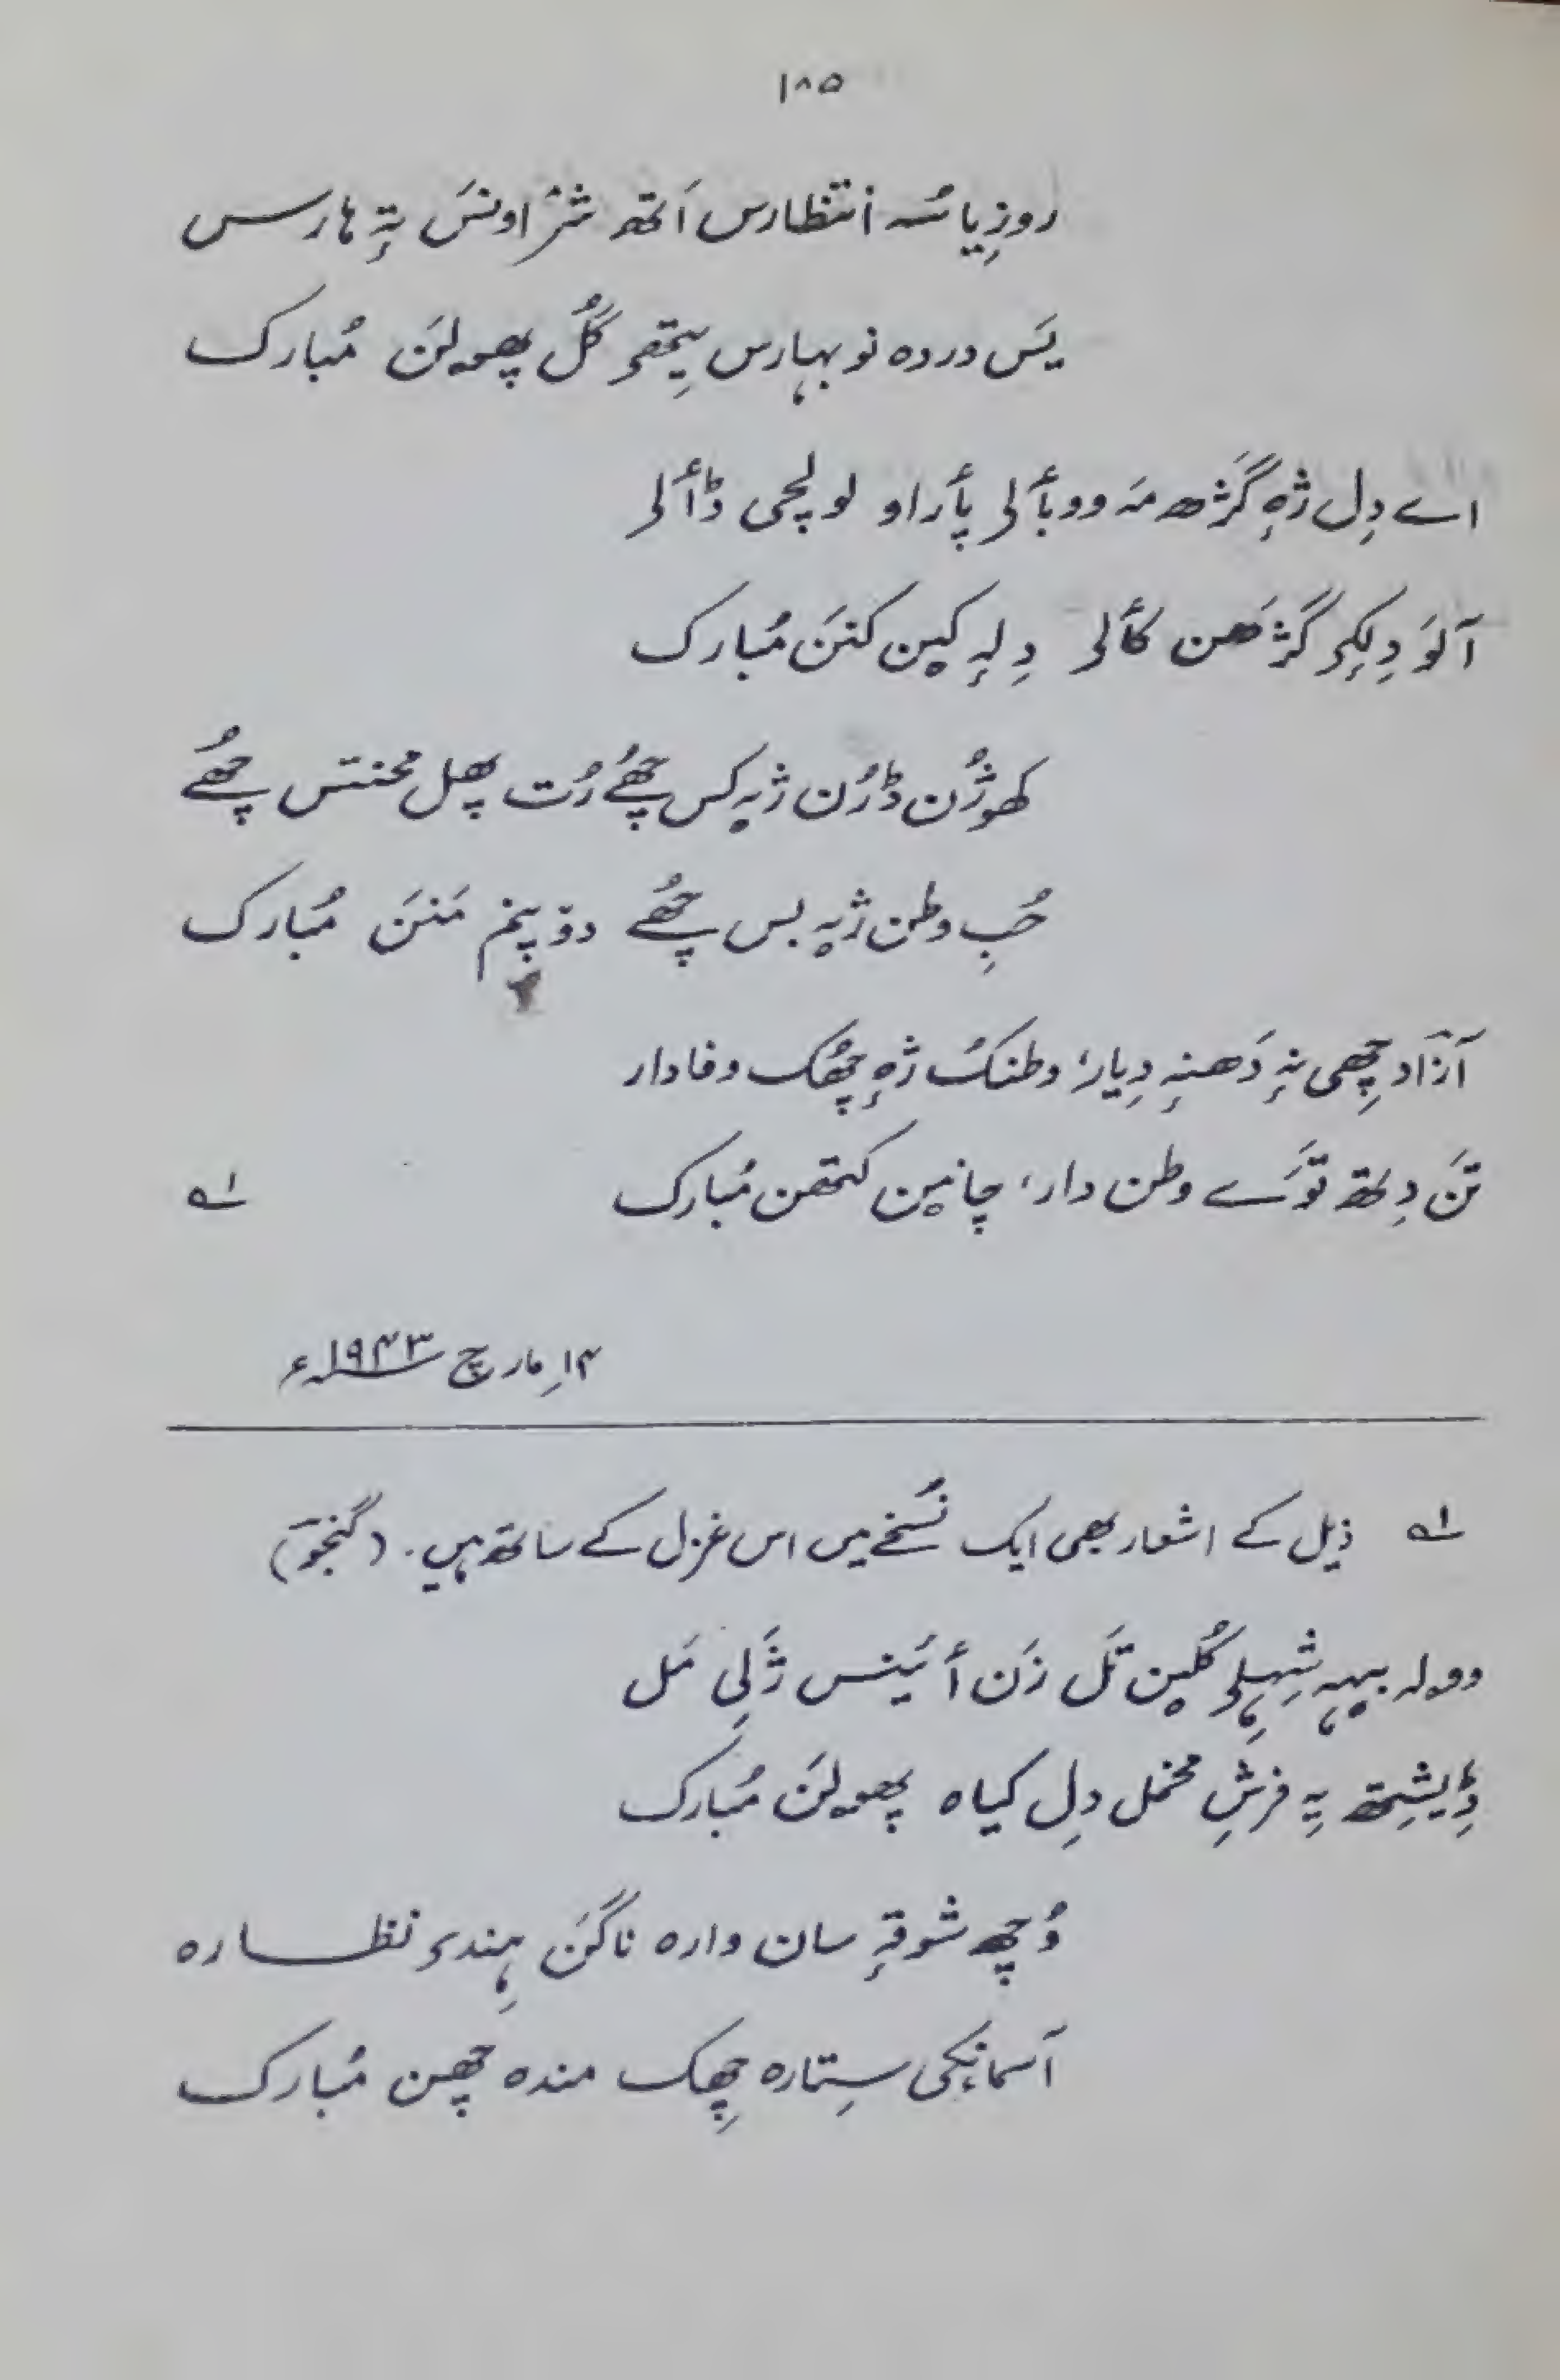 ۱۸۵
روزِیا سُہ اِنتظارس اَتھ شرٛاونسَ تہٕ ہارس
یَس دردہ نو بہارس یِتھۍ گُل پھولنَ مُبارک
اے دِل ژہٕ گَژھ مہَ ووبألۍ پأراو لولچی ڈألۍ
آلوَ دِلکۍ گَژَھن کألۍ دِلہٕ کین کننَ مُبارک
کھوژُن ڈرُن ژیہ کس چھُے رُت پھل محنتس چھُے
حُبِ وطن ژیہ بس چھُے دوٚپنم مَننَ مُبارک
آزاد چھِی نہٕ دَھنہٕ دِیار، وطنکُ ژہٕ چھُک وفادار
تَن دِلتھ توَے وطن دار، چانین کتھن مُبارک ؎۱
۱۴؍ مارچ ۱۹۴۳ء
؎۱ ذیل کے اشعار بھی ایک نُسخے میں اس غزل کے ساتھ ہیں۔ (گنجوٓ)
وولہ بیہہ شہلۍ گُلین تَل زَن أئینس ژَلِی مَل
ڈِیشِتھ یہِ فرشِ مخمل دِل کیاہ پھولنَ مُبارک
وُچھ شوقہٕ سان وارہ ناگنَ ہِندۍ نظارہ
آسمانٕکی سِتارہ چھِک مندہ چھن مُبارک